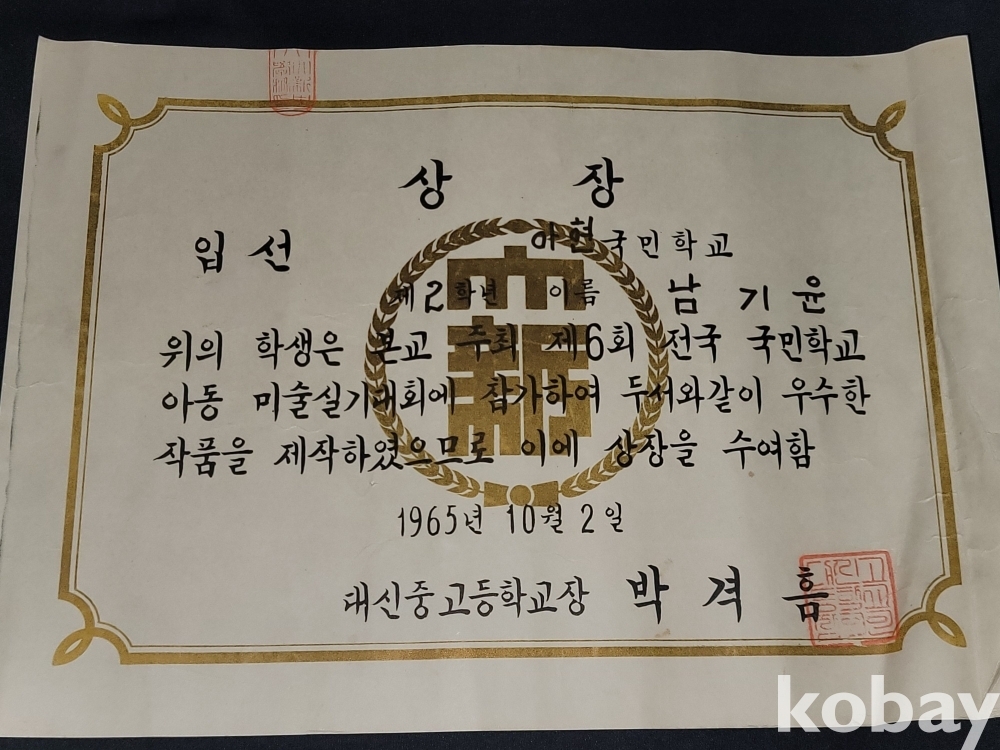 상 장
입 선
아현국민학교
제2학년 이름 남기윤
위의 학생은 본교 주최 제6회 전국 국민학교
아동 미술실기대회에 참가하여 두서와같이 우수한
작품을 제작하였으므로 이에 상장을 수여함
1965년 10월 2일
대신중고등학교장 박격흠
kobay